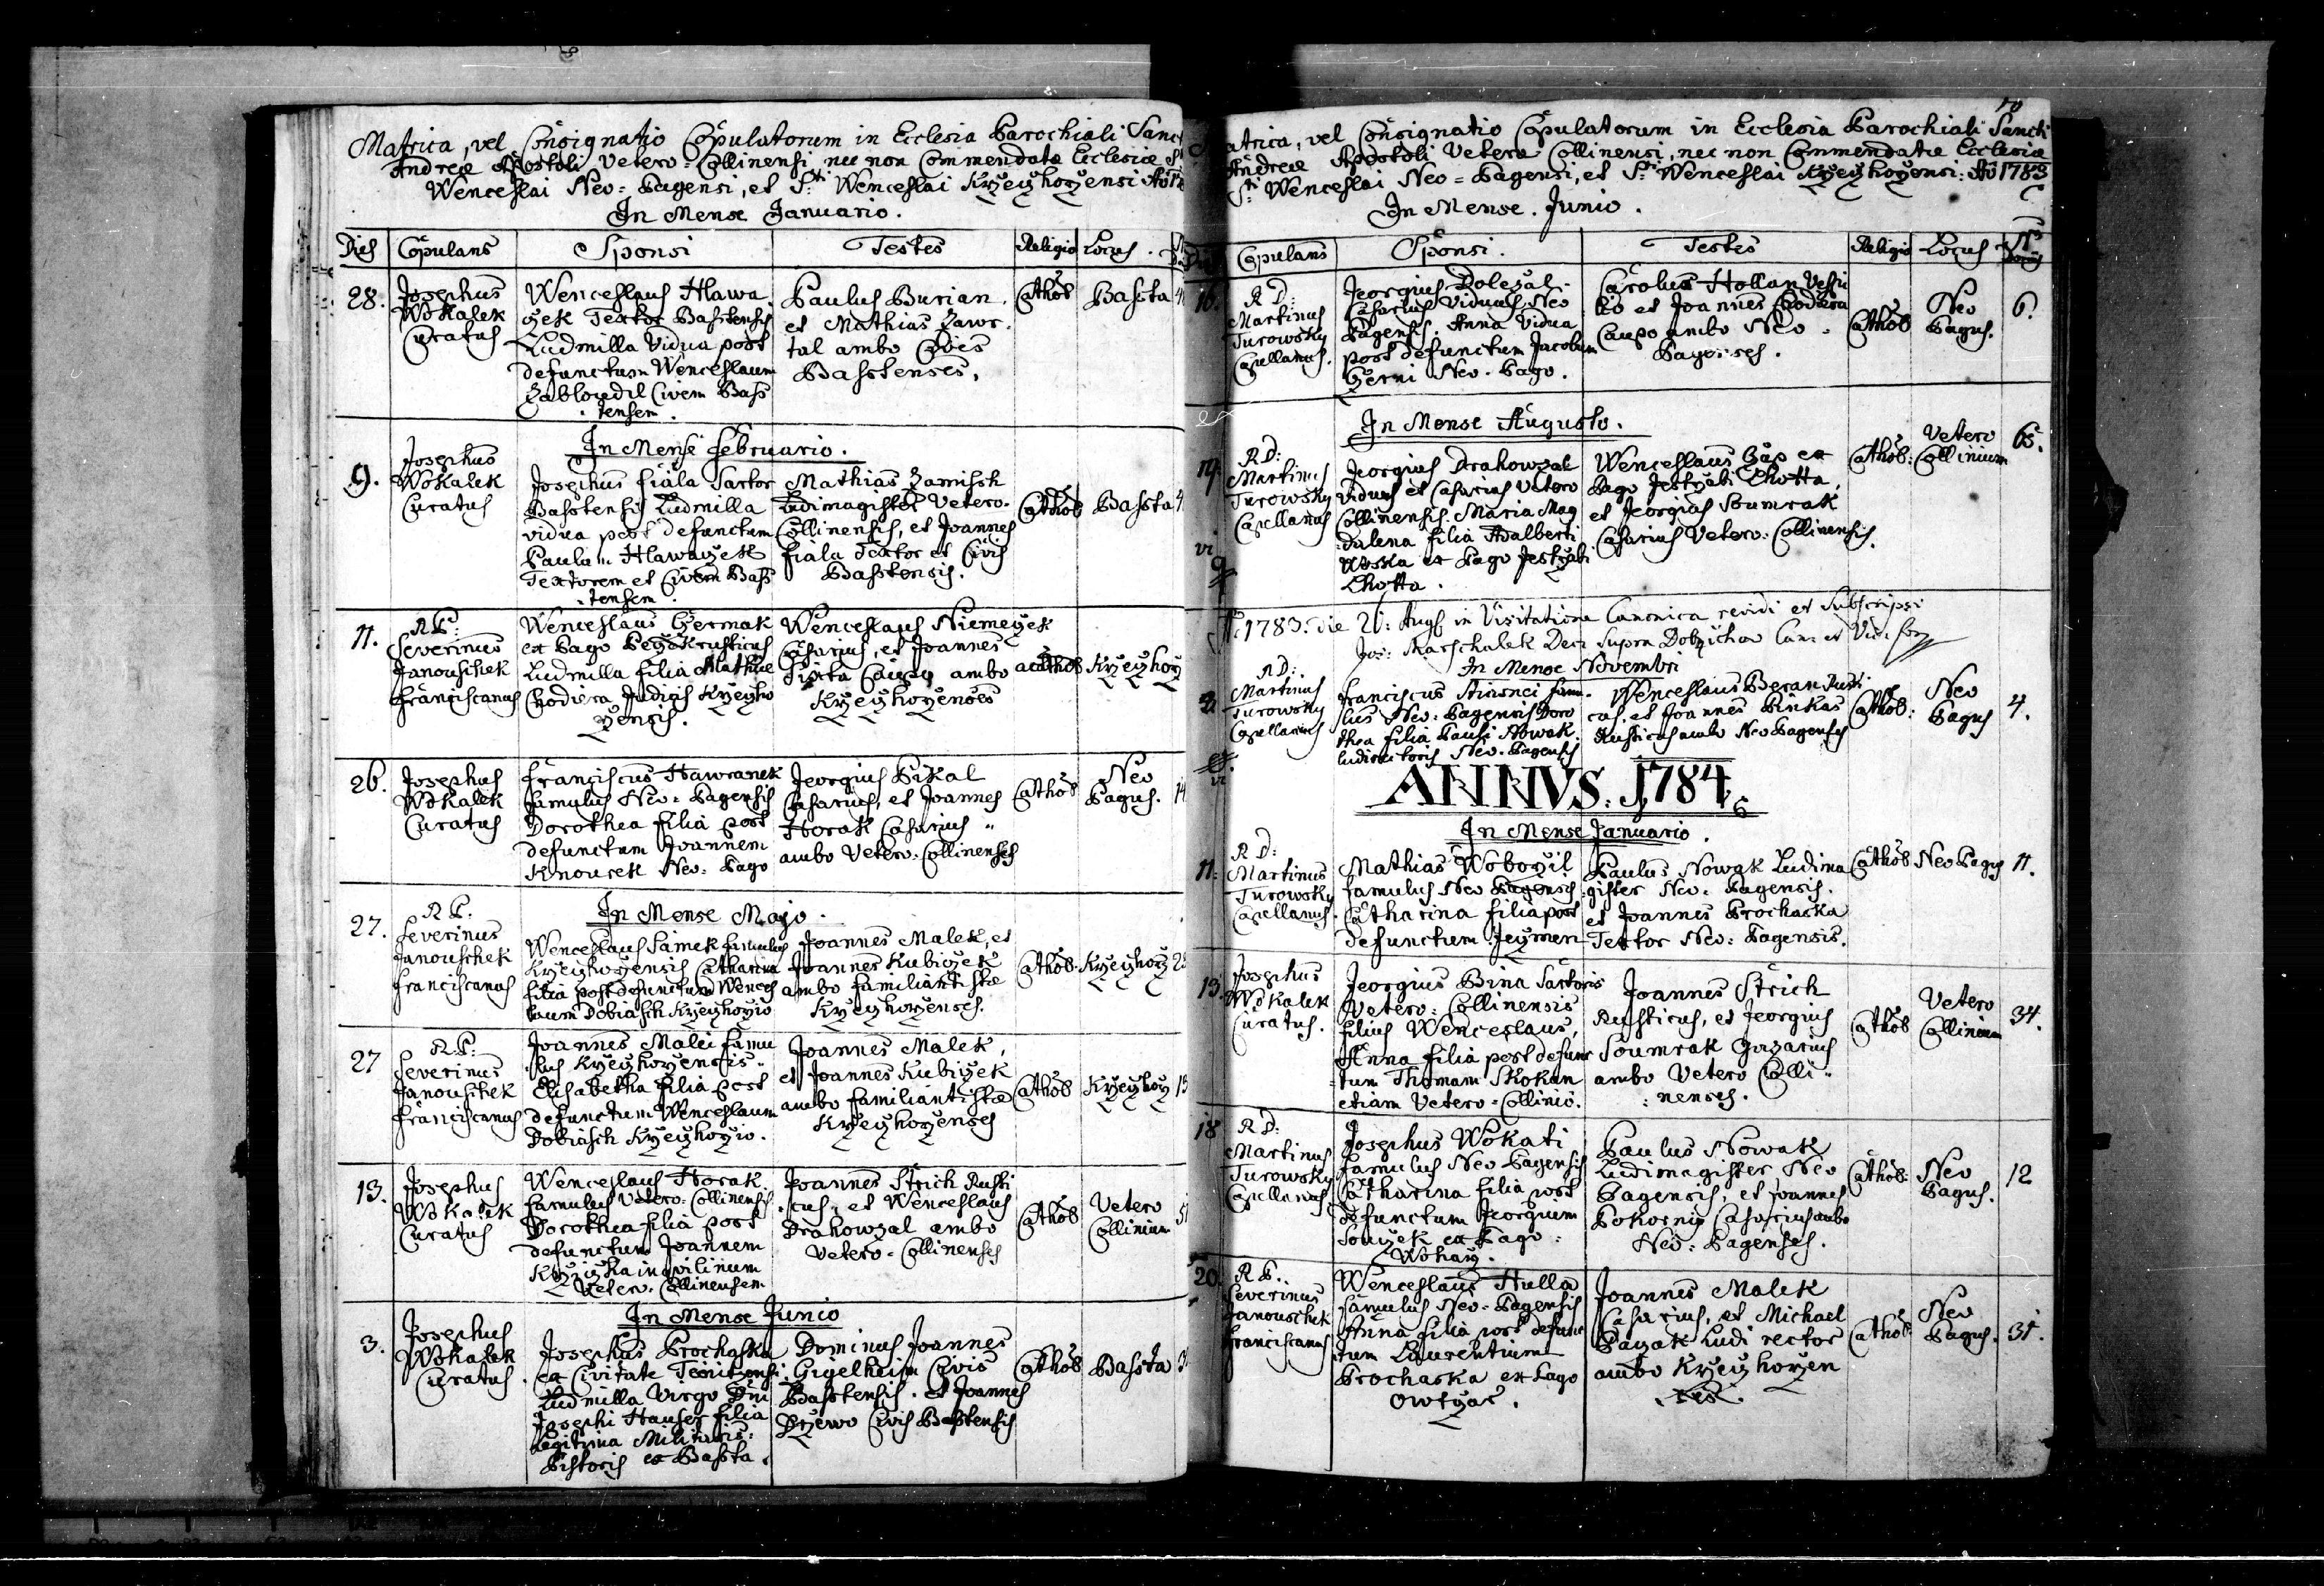 Matrica, vel Consignatio Copulatorum in Ecclesia Parochiali Sanc
Andreæ Apostoli Vetero-Collinensi nec non Commendatæ Ecclesiæ
Wenceslai Neo-Pagensi, et Sti Wenceslai Krzeczhorzensi
In Mense Januario.
Dies Copulans Sponsi Testes Religio Locus
28.
Josephus
Wokalek
Curatus
Wenceslaus Hlawa
czek Textor Basstensis
Ludmilla Vidua post
defunctum Wenceslaum
Zabloudil Civem Bass
tensem.
Paulus Burian,
et Mathias Zawr.
tal ambo Cives
Basstenses.
Cathol
Bassta
In Mense Februario.
9.
Josephus
Wokalek
Curatus
Josephus Fiala Sartor
Basstensis Ludmilla
vidua post defunctum
Paulum Hlawaczek
Textorem et Civem Bass
tensem.
Mathias Zamissk
Ludimagister Vetero-
Collinensis, et Joannes
Fiala Textor et Civis
Basstensis.
Cathol
Bassta
11.
R.P.
Severinus
Janouschek
Franciscanus
Wenceslaus Czermak
ex Pago rusticus
Ludmilla filia Mathiæ
Chodiera Judicis Krzeczho
rzensis.
Wenceslaus Niemeczek
Casarius, et Joannes
Sixta Caupo ambo
Krzeczhorzenses
Cathol
Krzeczhorz
26.
Josephus
Wokalek
Curatus
Franciscus Hawranek
famulus Neo-Pagensis
Dorothea filia post
defunctum Joannem
Knourek Neo-Pago
Jeorgius Pikal
Casarius, et Joannes
Horak Casarius
ambo Vetero-Collinenses
Cathol
Neo
Pagus.
14
In Mense Majo.
27.
R.P.
Severinus
Janouschek
Franciscanus
Wenceslaus Samek famulus
Krzeczhorzensis Catharina
filia post defunctum Wences
laum Dobiasch Krzeczhorzio
Joannes Malek, et
Joannes Kubiczek
ambo familiantistæ
Krzeczhorzenses.
Cathol.
Krzeczhorz
27
R.P.
Severinus
Janouschek
Franciscanus
Joannes Malei famu
lus Krzeczhorzensis
Elisabetha filia post
defunctum Wenceslaum
Dobiasch Krzeczhorzio.
Joannes Malek,
et Joannes Kubiczek
ambo familiantistæ
Krzeczhorzenses
Cathol
Krzeczhorz
13.
Josephus
Wokalek
Curatus
Wenceslaus Horak
famulus Vetero-Collinensis
Dorothea filia post
defunctum Joannem
inquilinum
Vetero-Collinensem
Joannes Strich Rusti
cus, et Wenceslaus
Drahowzal ambo
Vetero-Collinenses
Cathol
Vetero
Collinium
In Mense Junio
3.
Josephus
Wokalek
Curatus.
Josephus Prochaska
ex Civitate
Ludmilla Virgo Dni
Josephi Hauser filia
legitima
Pistoris ex Bassta.
Dominus Joannes
Gigelheim Civis
Basstensis. et Joannes
Drzewo Civis Basstensis
Cathol
Bassta
Matrica, vel Consignatio Copulatorum in Ecclesia Parochiali Sancti
Andreæ Apostoli Vetero Collinensi, nec non Commendatæ Ecclesiæ
Sti Wenceslai Neo-Pagensi, et Sti Wenceslai Krzeczhorzensi: Ao 1783
In Mense. Junio.
Copulans Sponsi. Testes Religio Locus
16.
R D:
Martinus
Turowsky
Capellanus.
Jeorgius Dolezal
Casarius Viduus Neo
Pagensis. Anna Vidua
post defunctum Jacobum
Czerni Neo-Pago.
Carolus Hollan Vespi
lio et Joannes Chodiera
Caupo ambo Neo
Pagenses.
Cathol
Neo
Pagus.
6.
In Mense Augusto.
R D:
Martinus
Turowsky
Capellanus
Jeorgius Drahowzal
viduus et Casarius Vetero
Collinensis. Maria Mag
dalena filia Adalberti
ex Pago Jestrzabi
Lhotta.
Wenceslaus Czap ex
Pago Jestrzabi Lhotta,
et Jeorgius Soumrak
Casarius Vetero-Collinensis.
Cathol:
Vetero
Collinium
65.
1783. die 21: Aug in Visitatione Canonica revidi et Subscripsi
Jos: Marschalek
In Mense Novembri
R D:
Martinus
Turowsky
Capellanus
Franciscus fam.
lus Neo-Pagensis Doro
thea filia Pauli Nowak
ludirectoris Neo-Pagensis
Wenceslaus Beran Rusti
cus, et Joannes Pinkas
Rusticus ambo Neo Pagenses
Cathol:
Neo
Pagus
4.
ANNVS. 1784
In Mense Januario.
11.
R D:
Martinus
Turowsky
Capellanus.
Mathias Woborzil
famulus Neo Pagensis
Catharina filia post
defunctum Jeymen
Paulus Nowak Ludima
gister Neo-Pagensis.
et Joannes Prochaska
Textor Neo-Pagensis.
Cathol
Neo Pagus
11.
13.
Josephus
Wokalek
Curatus.
Jeorgius Bina Sartoris
Vetero-Collinensis
filius Wenceslaus,
Anna filia post defunc
tum Thomam Skokan
etiam Vetero-Collinio.
Joannes Strich
Rusticus, et Jeorgius
Soumrak Gazarius
ambo Vetero Colli
nenses.
Cathol
Vetero
Collinium
34.
18
R D:
Martinus
Turowsky
Capellanus
Josephus Wokati
famulus Neo-Pagensis
Catharina filia post
defunctum Jeorgium
Souczek ex Pago:
Woharz.
Paulus Nowak
Ludimagister Neo
Pagensis, et Joannes
Pokorny Casarius ambo
Neo-Pagenses.
Cathol:
Neo
Pagus.
12
20.
R P.
Severinus
Janouschek
Franciscanus
Wenceslaus Hulla
famulus Neo-Pagensis
Anna filia post defunc
tum Laurentium
Prochaska ex Pago
Owczar.
Joannes Malek
Casarius, et Michael
Pazak Ludi rector
ambo Krzeczhorzen
ses.
Cathol
Neo
Pagus.
31.